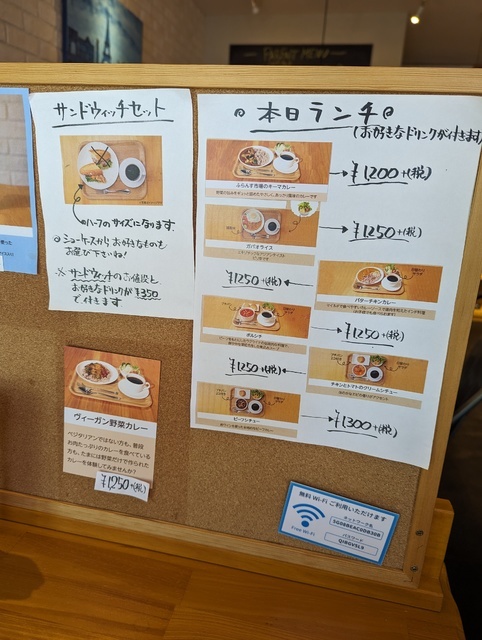 サンドウィッチセット
ハーフのサイズになります
ショーケースからお好きなものを
お選び下さいね！
※ サンドウィッチのご値段と
お好きなドリンクが¥350
で付きます
本日ランチ
(お好きなドリンクが付きます)
ふらんす市場のキーマカレー
¥1200+(税)
ガパオライス
¥1250+(税)
バターチキンカレー
¥1250+(税)
ボルシチ
¥1250+(税)
チキンとトマトのクリームシチュー
¥1250+(税)
ビーフシチュー
¥1300+(税)
ヴィーガン野菜カレー
ベジタリアンではない方も、普段
お肉たっぷりのカレーを食べている
方も、たまには野菜だけで作られた
カレーを体験してみませんか？
¥1,250+(税)
無料 Wi-Fi ご利用いただけます
Free Wi-Fi
ネットワーク名
SG08BEAC0DB30B
パスワード
QJBGVSLX